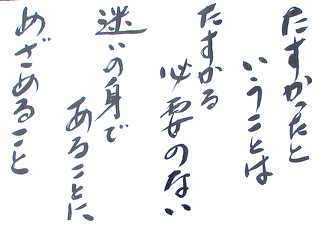 たすかったと
いうことは
たすかる
必要のない
迷いの身で
あることに
めざめること